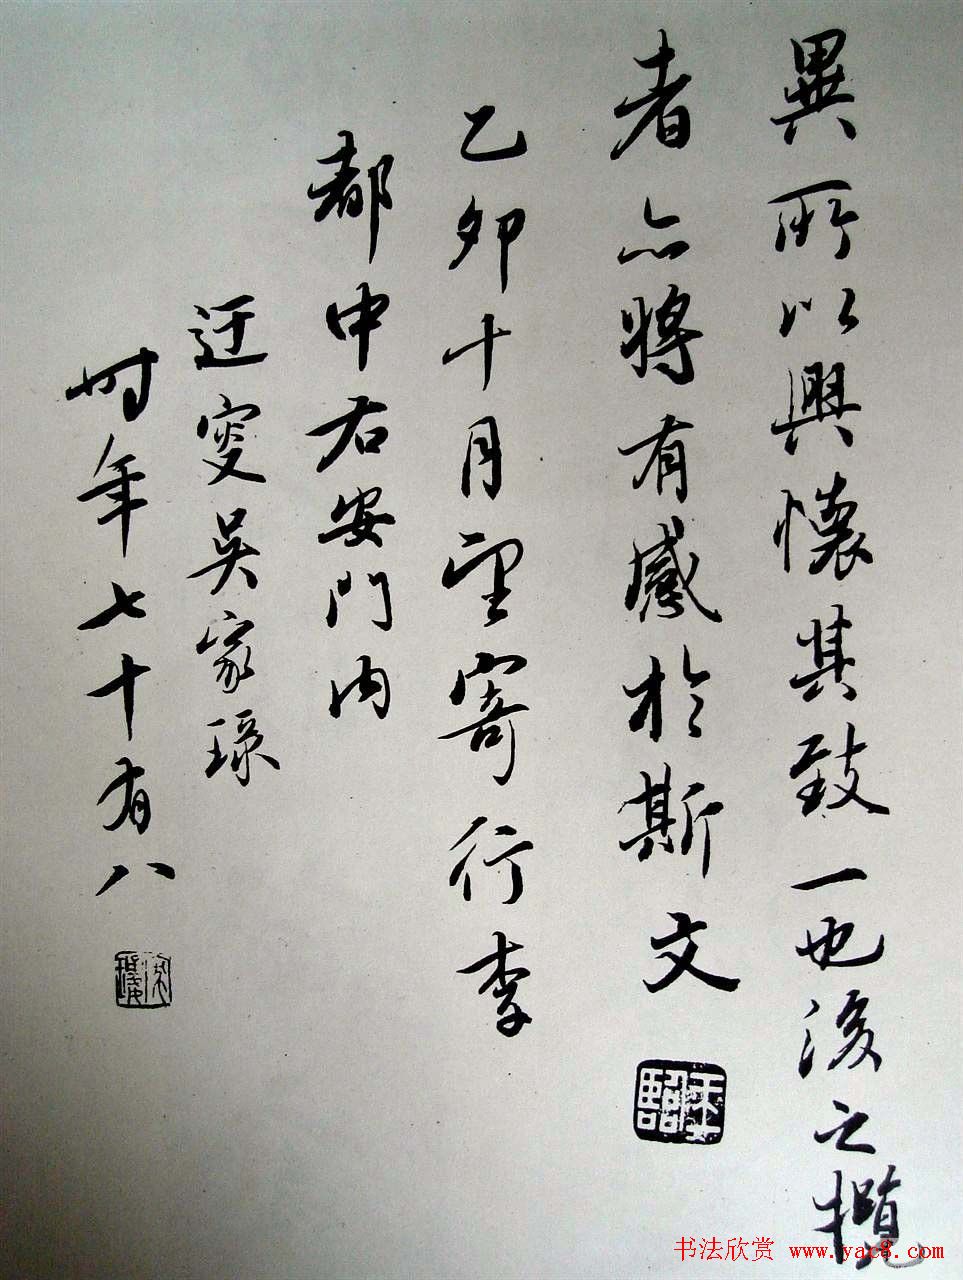 異所以興懷其致一也後之攬
者亦將有感於斯文
乙卯十月望寄行李
都中右安門內
迂叟吳家琭
时年七十有八
书法欣赏 www.yac8.com